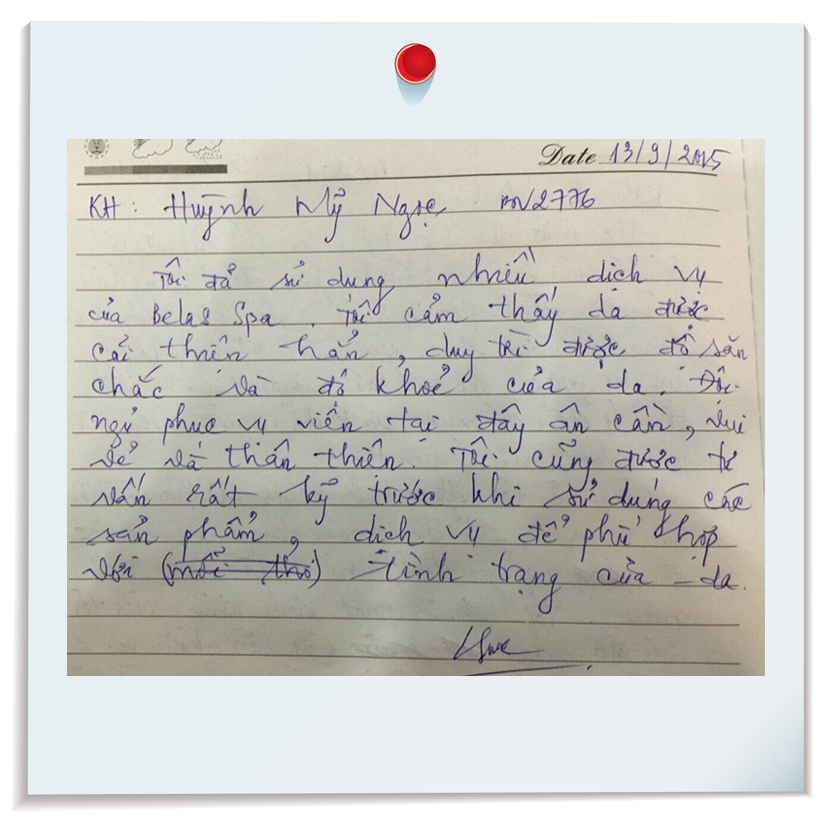 Date 13/9/2015
KH: Huỳnh Mỹ Ngọc BN2776
Tôi đã sử dụng nhiều dịch vụ
của Belas Spa. Tôi cảm thấy da được
cải thiện hẳn, duy trì được độ săn
chắc và độ khoẻ của da. Đội
ngũ phục vụ viên tại đây ân cần, vui
vẻ và thân thiện. Tôi cũng được tư
vấn rất kỹ trước khi sử dụng các
sản phẩm, dịch vụ để phù hợp
với tình trạng của da.